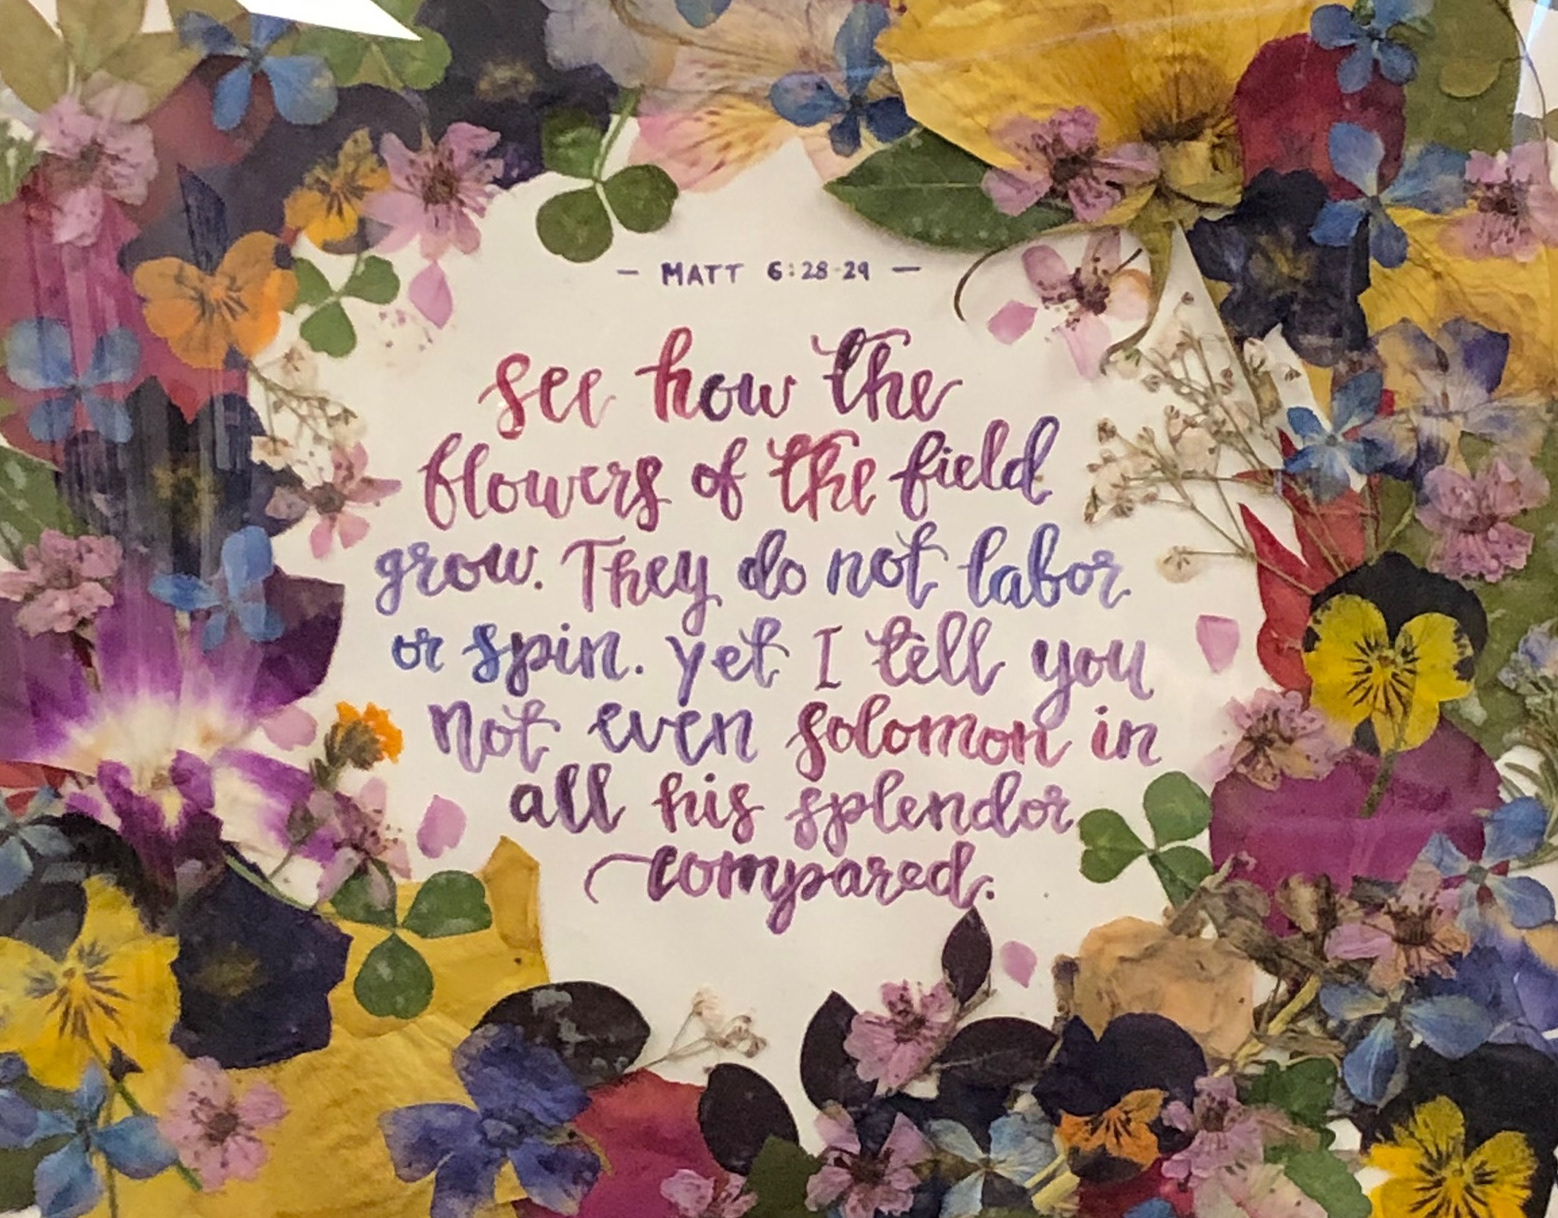 — MATT 6:28-29 —
see how the
flowers of the field
grow. They do not labor
or spin. yet I tell you
not even solomon in
all his splendor
compared.